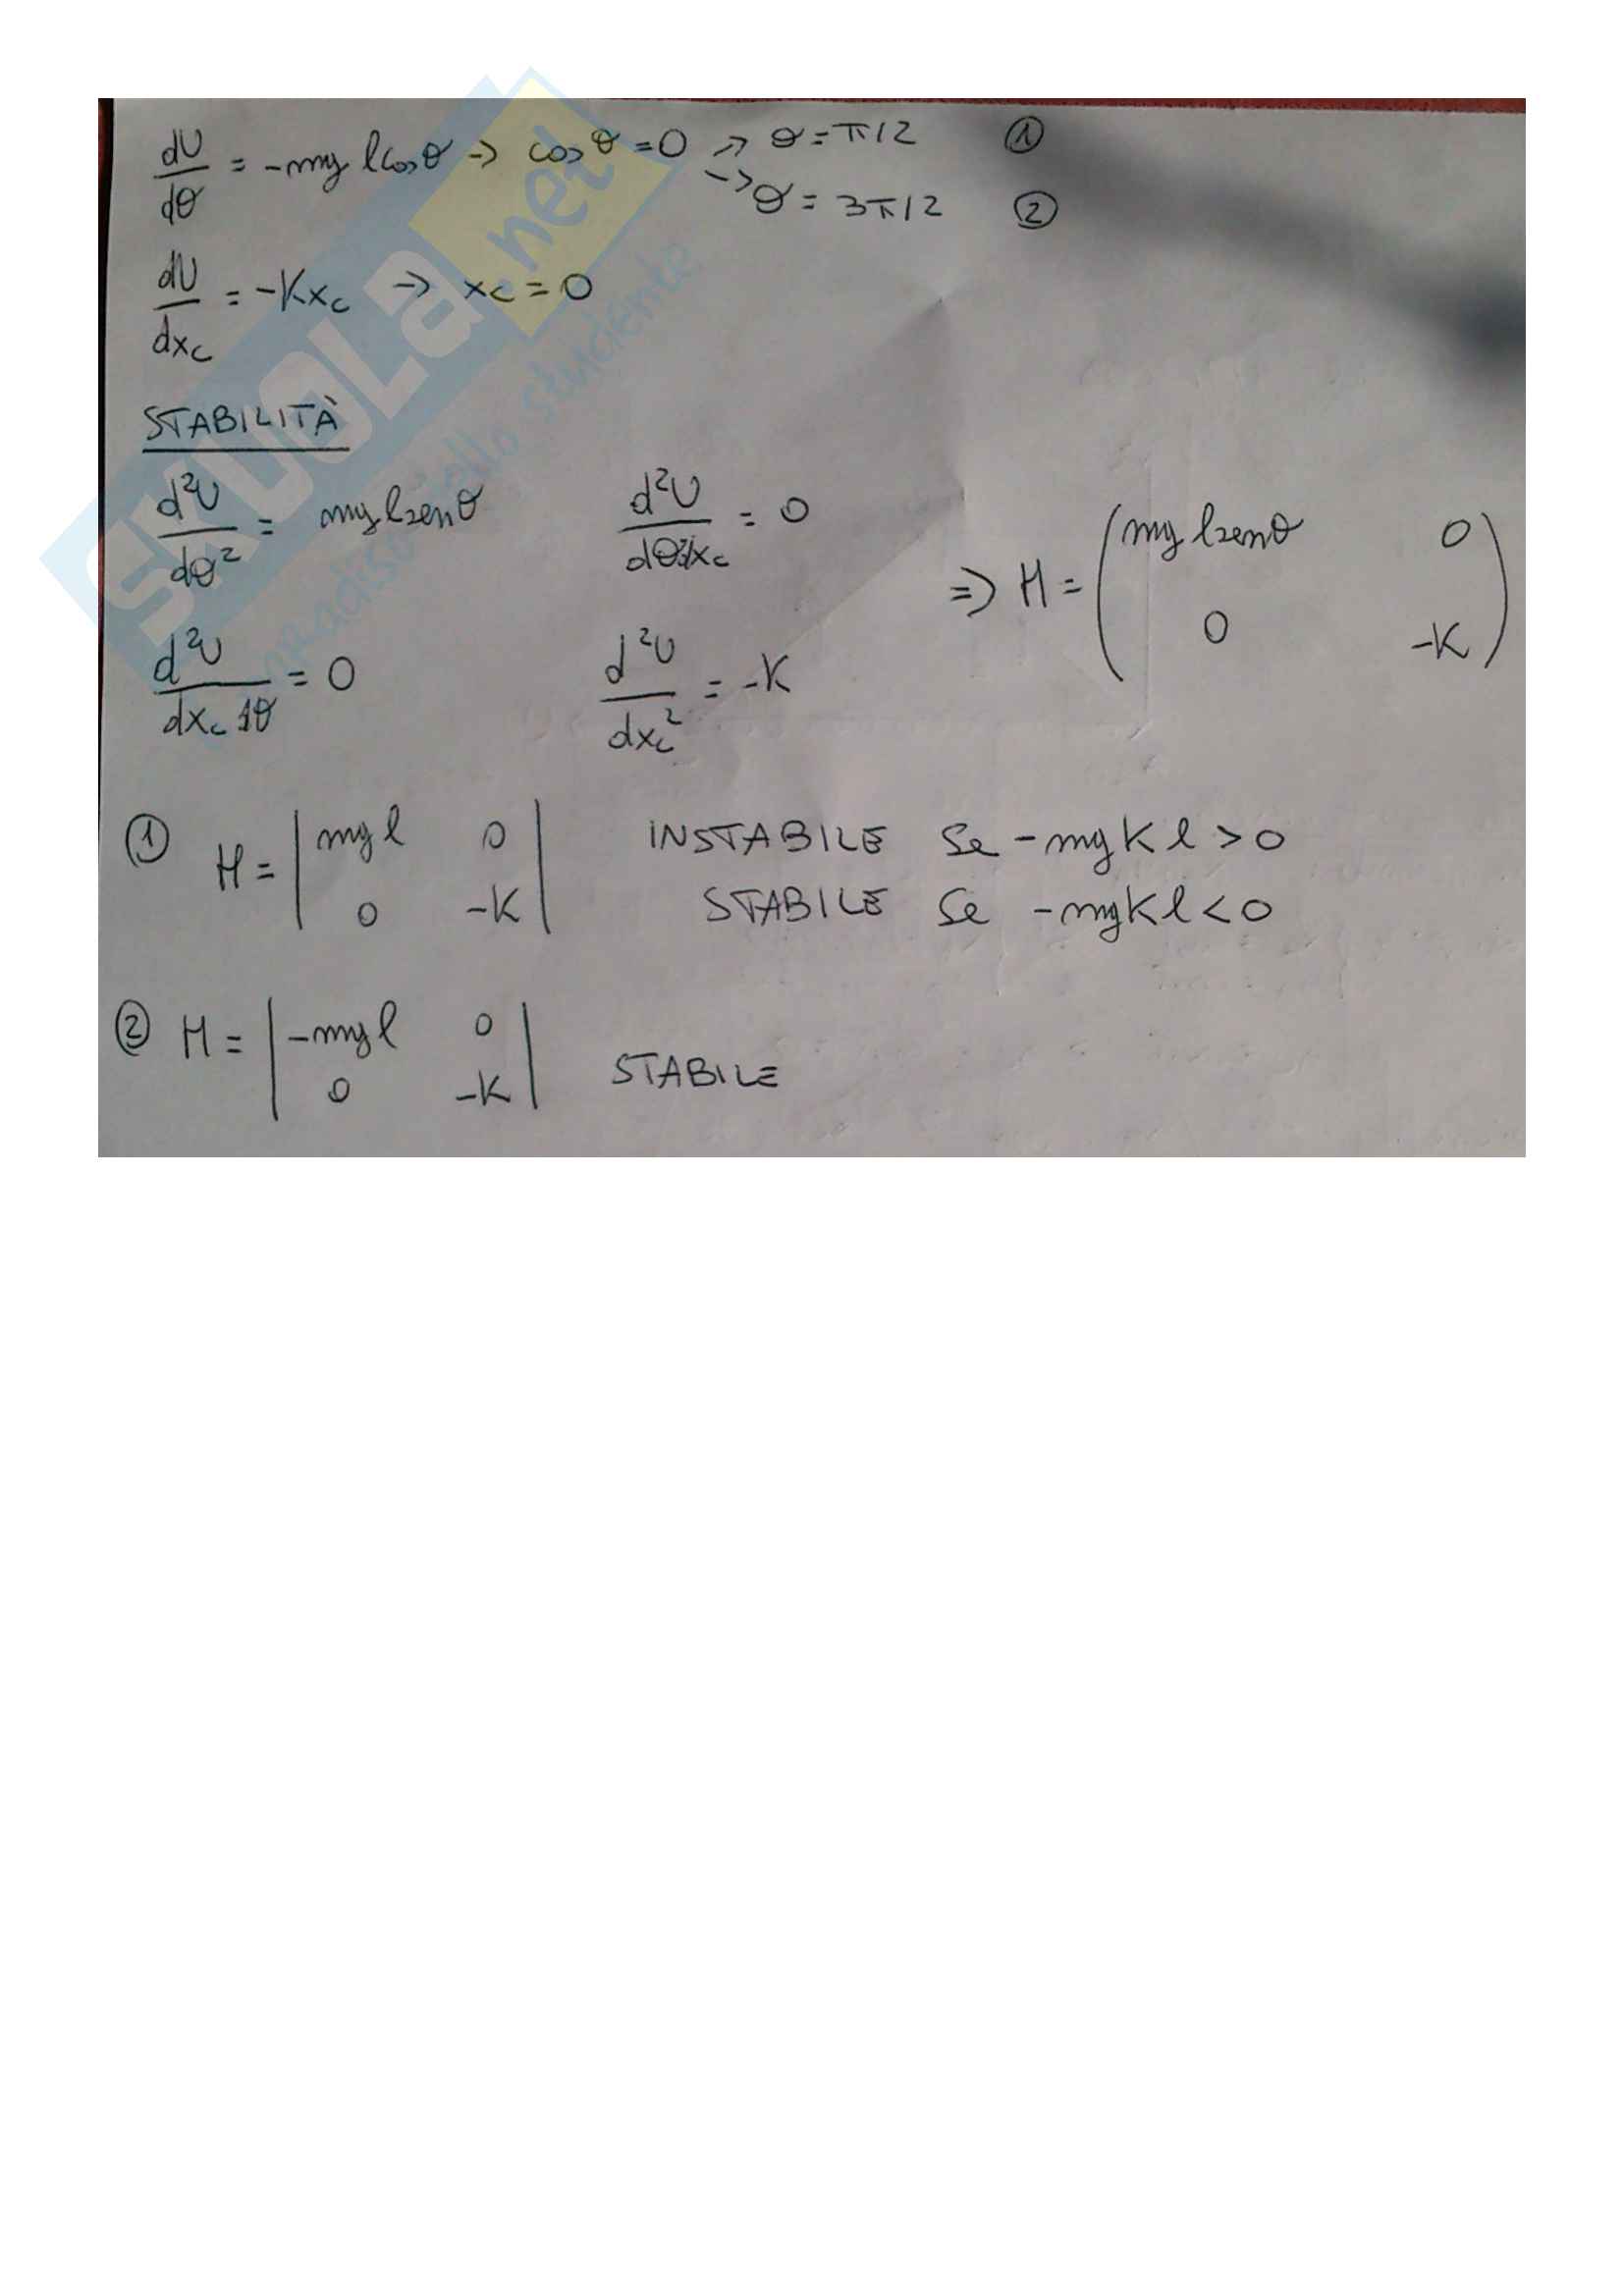 dU/dθ = -mg l cosθ → cosθ = 0 → θ = π/2 ①
→ θ = 3π/2 ②
dU/dxc = -Kxc → xc = 0
STABILITÀ
d²U/dθ² = mg l senθ d²U/dθdxc = 0
⇒ H = (mg l senθ 0
0 -K)
d²U/dxc dθ = 0 d²U/dxc² = -K
① H = |mg l 0
0 -K|
INSTABILE Se -mgKl > 0
STABILE Se -mgKl < 0
② H = |-mg l 0
0 -K|
STABILE
SKUOLA.net
paradiso dello studente